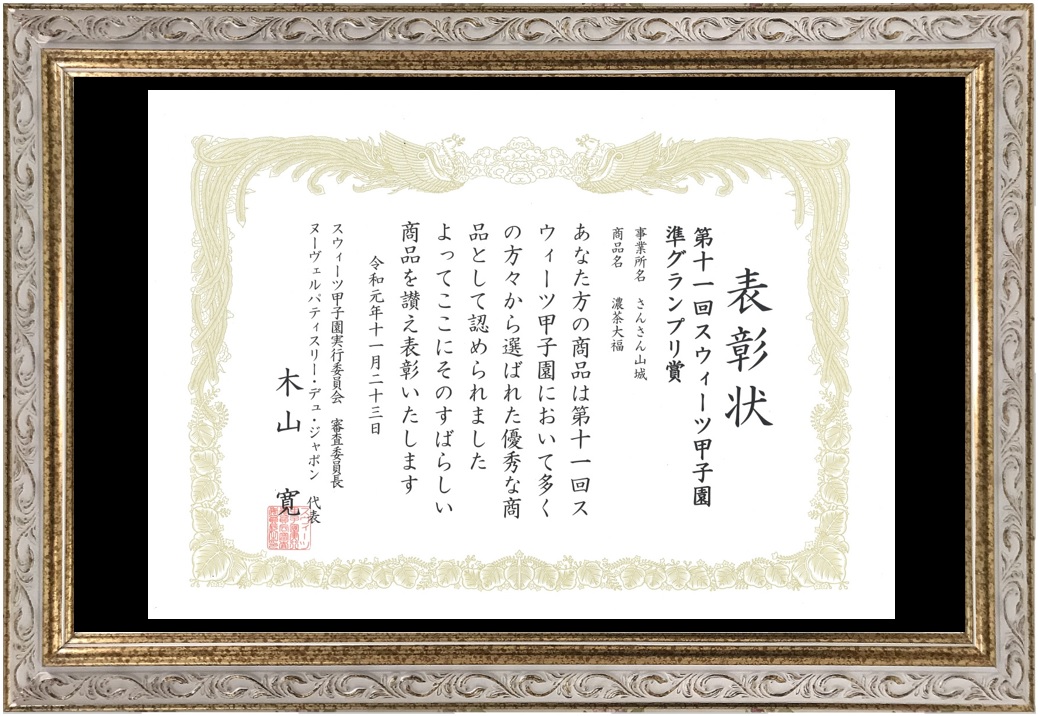 表彰状
第十一回スウィーツ甲子園
準グランプリ賞
事業所名 さんさん山城
商品名 濃茶大福
あなた方の商品は第十一回ス
ウィーツ甲子園において多く
の方々から選ばれた優秀な商
品として認められました
よってここにそのすばらしい
商品を讃え表彰いたします
令和元年十一月二十三日
スウィーツ甲子園実行委員会 審査委員長
ヌーヴェルパティスリー・デュ・ジャポン 代表
木山 寛